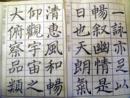 一詠亦足以
暢敘幽情是
日也天朗氣
清惠風和暢
仰觀宇宙之
大俯察品類